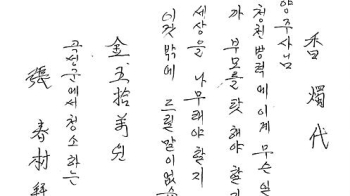 香燭代
양주사님
청천벽력에 이게 무슨 일
까 부모를 탓해야 할
세상을 나무래야 할지
이것 밖에 드릴 말이 없
金五拾萬원
곡성군에서 청소하는
張春村